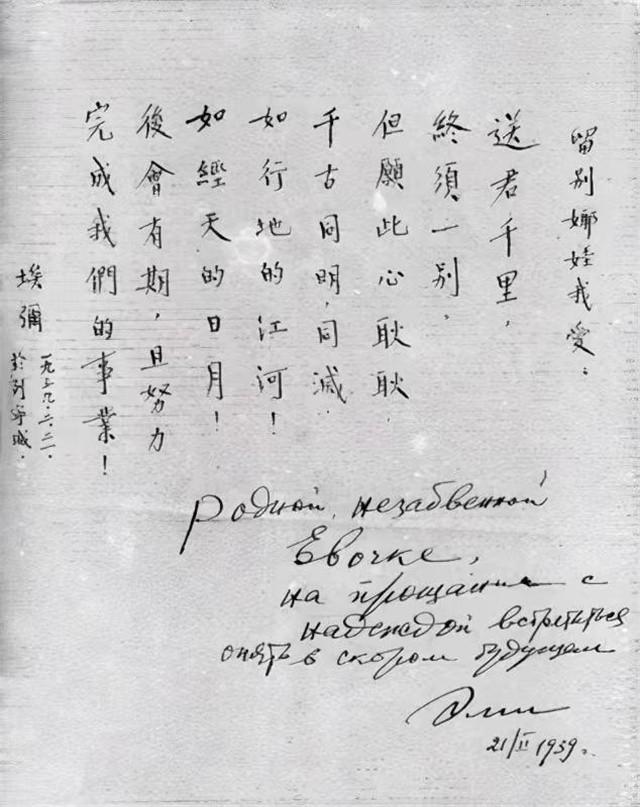 留别娜娃我爱：
送君千里，
終須一别。
但願此心耿耿
千古同明，同滅
如行地的江河！
如經天的日月！
後會有期，且努力
完成我們的事業！
埃彌
一九三九.二.二一.
於列寧城.
Родной, незабвенной
Евочке,
на прощание с
надеждой встретиться
опять в скором будущем
Эми
21/II 1939.